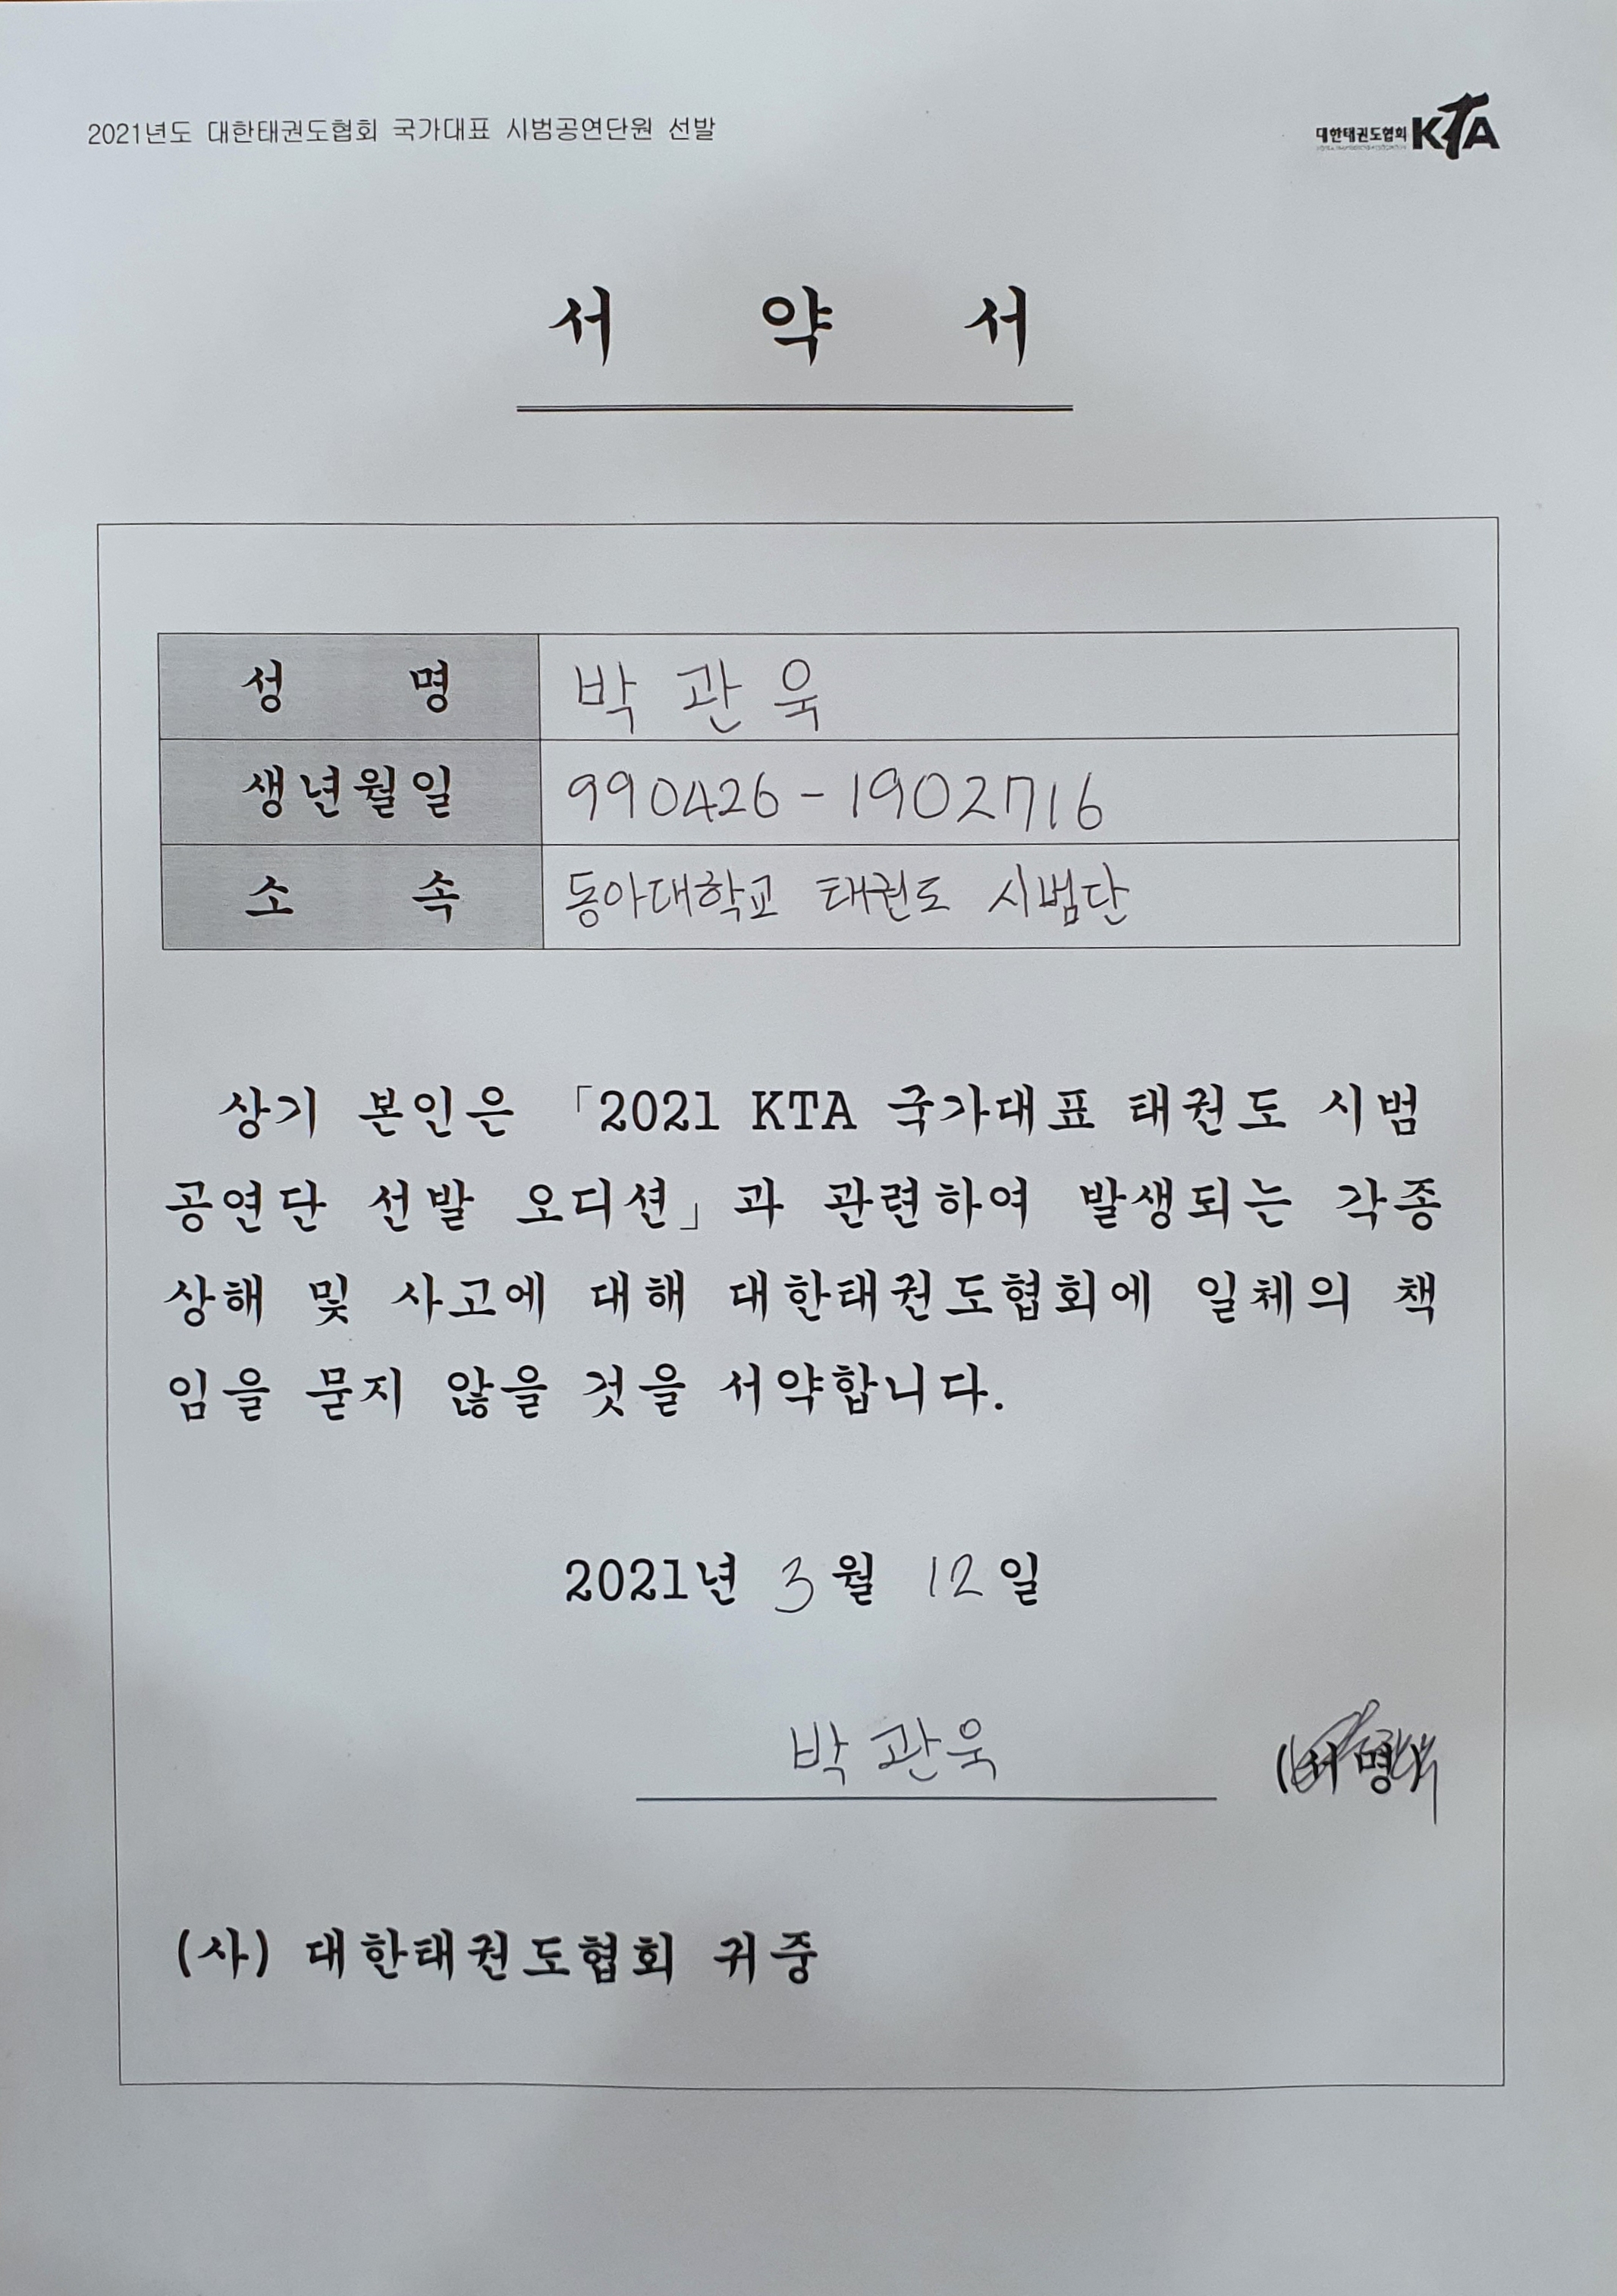 2021년도 대한태권도협회 국가대표 시범공연단원 선발
대한태권도협회 KTA
서 약 서
성 명 박관욱
생년월일 990426-1902716
소 속 동아대학교 태권도 시범단
상기 본인은 「2021 KTA 국가대표 태권도 시범
공연단 선발 오디션」과 관련하여 발생되는 각종
상해 및 사고에 대해 대한태권도협회에 일체의 책
임을 묻지 않을 것을 서약합니다.
2021년 3월 12일
박관욱 (서명)
(사) 대한태권도협회 귀중